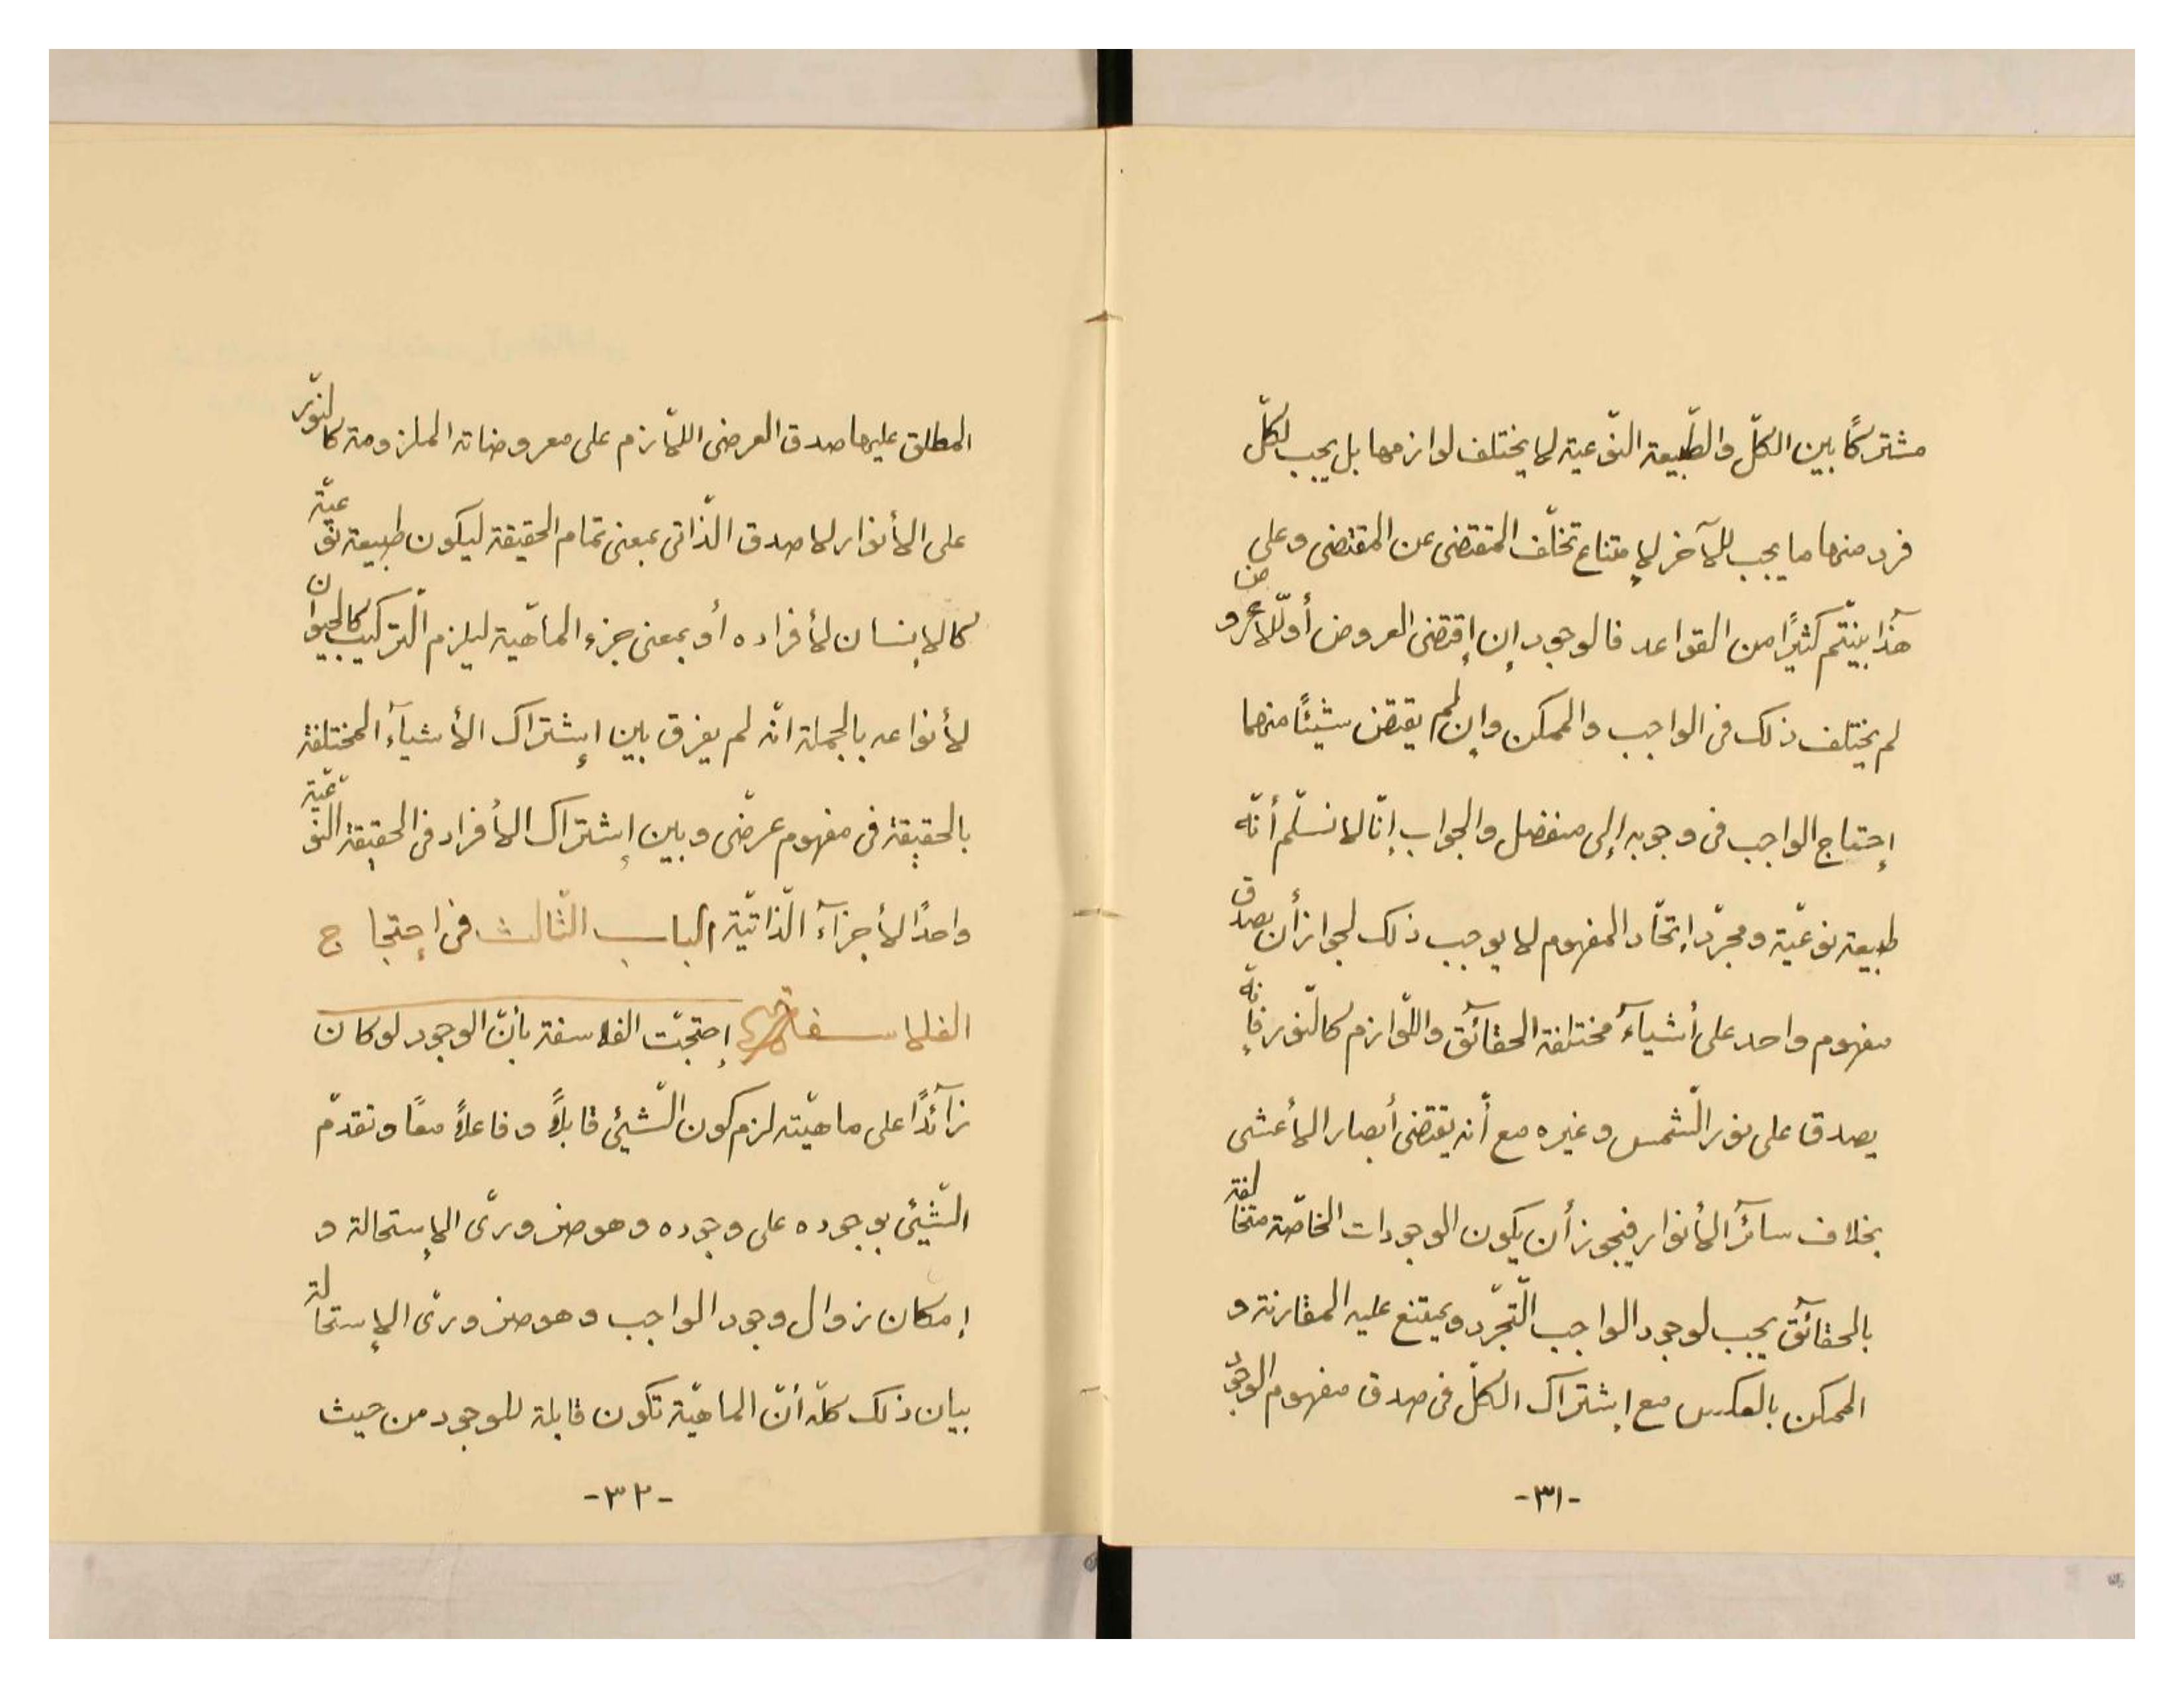 مشتركًا بين الكلّ والطّبيعة النّوعية لا يختلف لوازمها بل يجب لكلّ
فرد منها ما يجب للآخر لإمتناع تخلّف المقتضى عن المقتضى وعلى
هذا بنيتم كثيرًا من القواعد فالوجود إن إقتضى العروض أو اللّاعروض
لم يختلف ذلك فى الواجب والممكن وإن لم يقتض شيئًا منهما
إحتاج الواجب فى وجوبه إلى منفصل والجواب إنّا لا نسلّم أنّه
طبيعة نوعّية ومجرّد إتحّاد المفهوم لا يوجب ذلك لجواز أن يصدق
مفهوم واحد على أشيآء مختلفة الحقآئق واللّوازم كالنّور فإنّه
يصدق على نور الشّمس وغيره مع أنّه يقتضى أبصار الأعشى
بخلاف سآئر الأنوار فيجوز أن يكون الوجودات الخاصّة متخالفة
بالحقآئق يجب لوجود الواجب التّجرّد ويمتنع عليه المقارنة و
الممكن بالعكس مع إشتراك الكلّ فى صدق مفهوم الوجود
-٣١-
المطلق عليها صدق العرضى اللّازم على معروضاته الملزومة كالنّور
على الأنوار لا صدق الذّاتى بمعنى تمام الحقيقة ليكون طبيعة نوعيّة
كالإنسان لأفراده أو بمعنى جزء الماهّية ليلزم التّركيب كالحيوان
لأنواعه بالجملة انّه لم يفرق بين إشتراك الأشيآء المختلفة
بالحقيقة فى مفهوم عرضّى وبين إشتراك الأفراد فى الحقيقة النّوعّية
واحدًا لأجزآء الذّاتيّة الباب الثّالث فى إحتجاج
الفلاسفة إحتجّت الفلاسفة بأنّ الوجود لو كان
زآئدًا على ماهيّته لزم كون الشّيئ قابلًا وفاعلًا معًا وتقدّم
الشّيئ بوجوده على وجوده وهو ضرورىّ الإستحالة و
إمكان زوال وجود الواجب وهو ضرورىّ الإستحالة
بيان ذلك كلّه أنّ الماهيّة تكون قابلة للوجود من حيث
-٣٢-